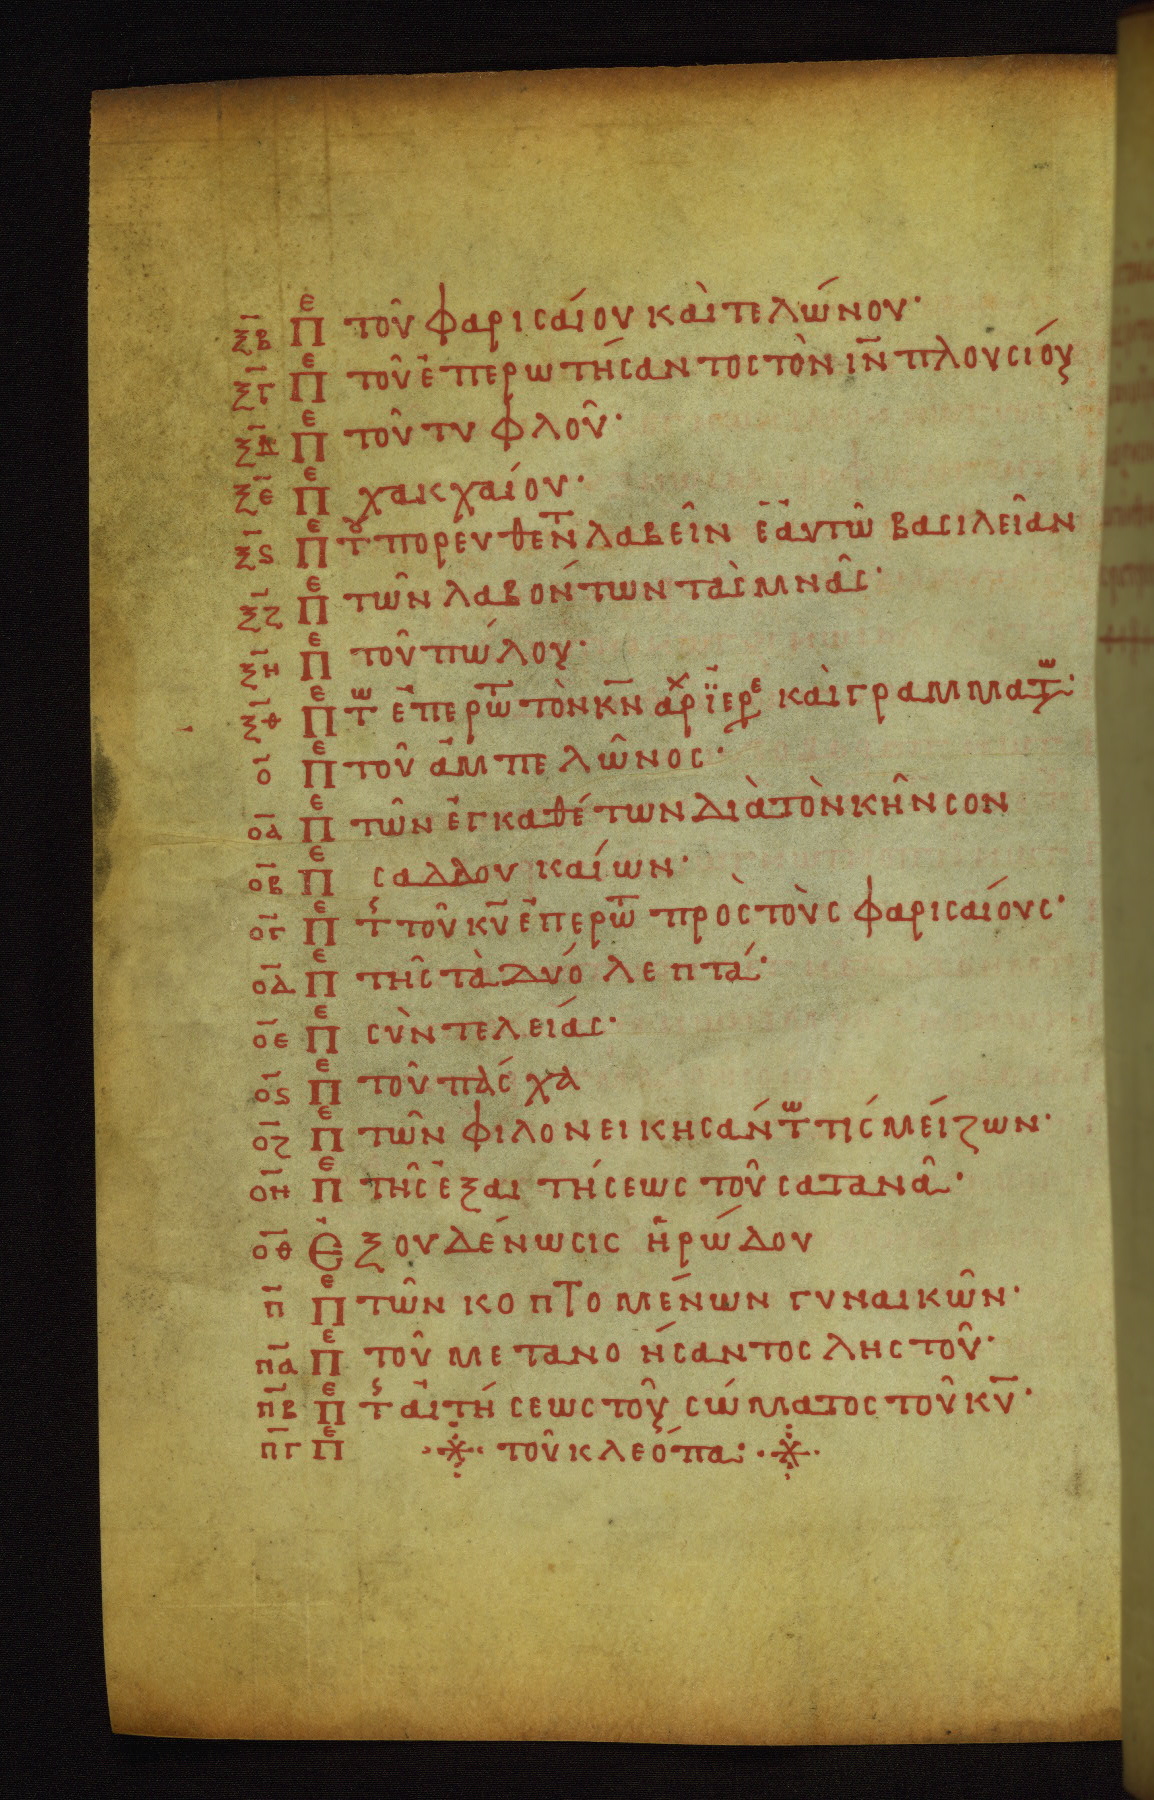 ξβ Πε τοῦ φαρισαίου καὶ τελώνου·
ξγ Πε τοῦ ἐπερωτήσαντος τὸν ιν πλουσίου
ξδ Πε τοῦ τυφλοῦ·
ξε Πε χακχαίου·
ξς Πε τ πορευθεντ λαβεῖν ἑαυτῶ βασιλεῖαν
ξζ Πε τῶν λαβόντων τὰς μνᾶς·
ξη Πε τοῦ πώλου·
ξθ Πε τω ἐπερωτ τὸν κν ἀρχϊερε καὶ γραμματω·
ο Πε τοῦ ἀμπελῶνος·
οα Πε τῶν ἐγκαθέτων διὰ τὸν κῆνσον
οβ Πε σαδδουκαίων·
ογ Πε τ τοῦ κυ ἐπερωτ πρὸς τοὺς φαρισαίους·
οδ Πε τῆς τὰ δύο λεπτά·
οε Πε σὺντελείας·
ος Πε τοῦ πάσχα
οζ Πε τῶν φιλονεικησάντω τίς μείζων·
οη Πε τῆς ἐξαιτήσεως τοῦ σατανᾶ·
οθ Ἐξουδένωσις ἡρώδου
π Πε τῶν κοπτομένων γυναικῶν·
πα Πε τοῦ μετανοήσαντος ληστοῦ·
πβ Πε τ αἰτήσεως τοῦ σώματος τοῦ κυ·
πγ Πε τοῦ κλεόπα·